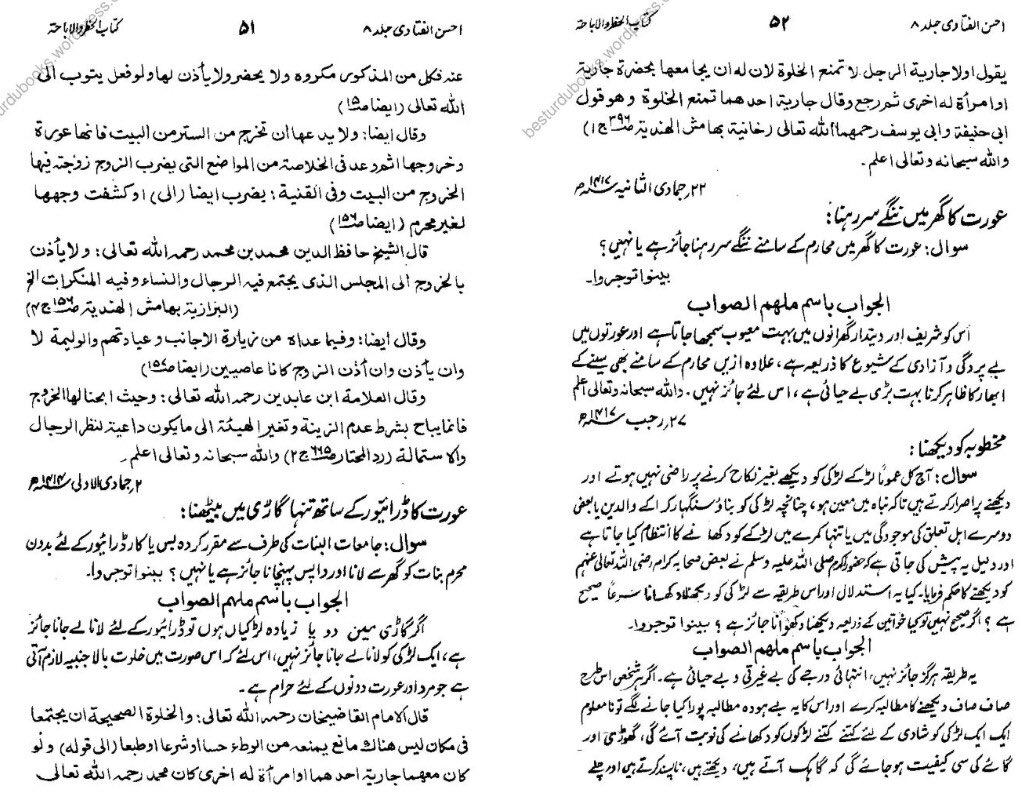 احسن الفتاوی جلد ۸ ۵۱ کتاب الحظر والاباحة
عنه فكل من المذكور مكروه ولا يحضر ولا يأذن لها ولو فعل يتوب الى
الله تعالى (ايضا ص۱۵)
وقال ايضا: ولا يدعها ان تخرج من الستر من البيت فانها عورة
وخروجها اثم وعد فى الخلاصة من المواضع التى يضرب الزوج زوجته فيها
الخروج من البيت وفى القنية: يضرب ايضا (الى) او كشفت وجهها
لغير محرم (ايضا ص۱۵۶)
قال الشيخ حافظ الدين محمد بن محمد رحمه الله تعالى: ولا يأذن
بالخروج الى المجلس الذى يجتمع فيه الرجال والنساء وفيه المنكرات الخ
(البزازية بهامش الهندية ص۱۵۶ ج۴)
وقال ايضا: وفيما عداه من زيارة الاجانب وعيادتهم والوليمة لا
وان يأذن وان أذن الزوج كانا عاصيين (ايضا ص۱۵۷)
وقال العلامة ابن عابدين رحمه الله تعالى: وحيث ابحنا لها الخروج
فانما يباح بشرط عدم الزينة وتغير الهيئة الى ما يكون داعية لنظر الرجال
والاستمالة (رد المحتار ص۶۶۵ ج۲) والله سبحانه وتعالى اعلم.
۲ر جمادی الاولی
عورت کا ڈرائیور کے ساتھ تنہا گاڑی میں بیٹھنا:
سوال: جامعات البنات کی طرف سے مقرر کردہ بس یا کار ڈرائیور کے لئے بدون
محرم بنات کو گھر سے لانا اور واپس پہنچانا جائز ہے یا نہیں؟ بینوا توجروا۔
الجواب باسم ملهم الصواب
اگر گاڑی میں دو یا زیادہ لڑکیاں ہوں تو ڈرائیور کے لئے لانا لے جانا جائز
ہے، ایک لڑکی کو لانا لے جانا جائز نہیں، اس لئے کہ اس صورت میں خلوت بالاجنبیہ لازم آتی
ہے جو مرد اور عورت دونوں کے لئے حرام ہے۔
قال الامام القاضيخان رحمه الله تعالى: والخلوة الصحيحة ان يجتمعا
فى مكان ليس هناك مانع يمنعه من الوطء حسا او شرعا او طبعا (الى قوله) ولو
كان معهما جارية احدهما او امرأة له اخرى كان محمد رحمه الله تعالى
احسن الفتاوی جلد ۸ ۵۲ کتاب الحظر والاباحة
يقول اولا جارية الرجل لا تمنع الخلوة لان له ان يجامعها بحضرة جارية
او امرأة له اخرى ثم رجع وقال جارية احدهما تمنع الخلوة وهو قول
ابى حنيفة وابى يوسف رحمهما الله تعالى (خانية بهامش الهندية ص۳۹۶ ج۱)
والله سبحانه وتعالى اعلم.
۲۲ر جمادی الثانیہ سنہ ۱۴۱۷ھ
عورت کا گھر میں ننگے سر رہنا:
سوال: عورت کا گھر میں محارم کے سامنے ننگے سر رہنا جائز ہے یا نہیں؟
بینوا توجروا۔
الجواب باسم ملهم الصواب
اس کو شریف اور دیندار گھرانوں میں بہت معیوب سمجھا جاتا ہے اور عورتوں میں
بے پردگی و آزادی کے شیوع کا ذریعہ ہے، علاوہ ازیں محارم کے سامنے بھی سینے کے
ابھار کا ظاہر کرنا بہت بڑی بے حیائی ہے، اس لئے جائز نہیں۔ واللہ سبحانہ وتعالی اعلم
۲۷ر رجب سنہ ۱۴۱۷ھ
مخطوبہ کو دیکھنا:
سوال: آج کل عموماً لڑکے لڑکی کو دیکھے بغیر نکاح کرنے پر راضی نہیں ہوتے اور
دیکھنے پر اصرار کرتے ہیں تاکہ نباہ میں معین ہو، چنانچہ لڑکی کو بناؤ سنگھار کرا کے والدین یا بعض
دوسرے اہل تعلق کی موجودگی میں یا تنہا کمرے میں لڑکے کو دکھانے کا انتظام کیا جاتا ہے
اور دلیل یہ پیش کی جاتی ہے کہ حضور اکرم صلی اللہ علیہ وسلم نے بعض صحابہ کرام رضی اللہ تعالی عنہم
کو دیکھنے کا حکم فرمایا۔ کیا یہ استدلال اور اس طریقہ سے لڑکی کو دیکھنا دکھانا شرعاً صحیح
ہے؟ اگر صحیح نہیں تو کیا خواتین کے ذریعہ دیکھنا دکھوانا جائز ہے؟ بینوا توجروا۔
الجواب باسم ملهم الصواب
یہ طریقہ ہرگز جائز نہیں، انتہائی درجے کی بے غیرتی و بے حیائی ہے۔ اگر ہر شخص اس طرح
صاف صاف دیکھنے کا مطالبہ کرے اور اس کا یہ بے ہودہ مطالبہ پورا کیا جانے لگے تو نا معلوم
ایک ایک لڑکی کو شادی کے لئے کتنے کتنے لڑکوں کو دکھانے کی نوبت آئے گی، گھوڑی اور
گائے کی سی کیفیت ہو جائے گی کہ گاہک آتے ہیں، دیکھتے ہیں، ناپسند کرتے ہیں اور چلے
besturdubooks.wordpress.com